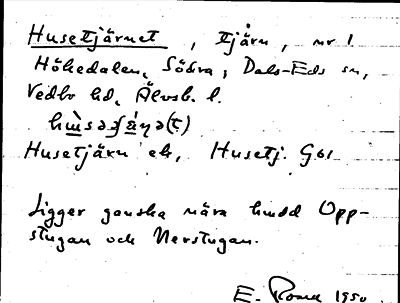 Husetjärnet, tjärn, nr 1
Höhedalen, Södra, Dals-Eds sn,
Vedbo hd, Älvsb. l.
Husetjärn ek, Husetj. G61
Ligger ganska nära hmdd Opp-
stugan och Nerstugan.
E. Rome 1950.